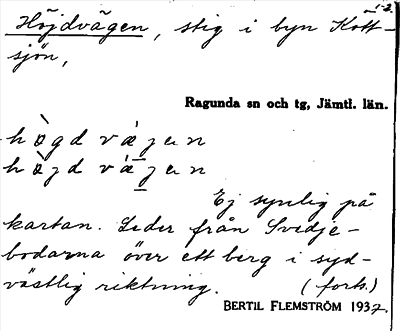 1-2.
Höjdvägen, stig i byn Kött-
sjön,
Ragunda sn och tg, Jämtl. län.
hògd vàgen
hòjd vàgen
Ej synlig på
kartan. Leder från Svedje-
bodarna över ett berg i syd-
västlig riktning. (forts.)
BERTIL FLEMSTRÖM 1937.